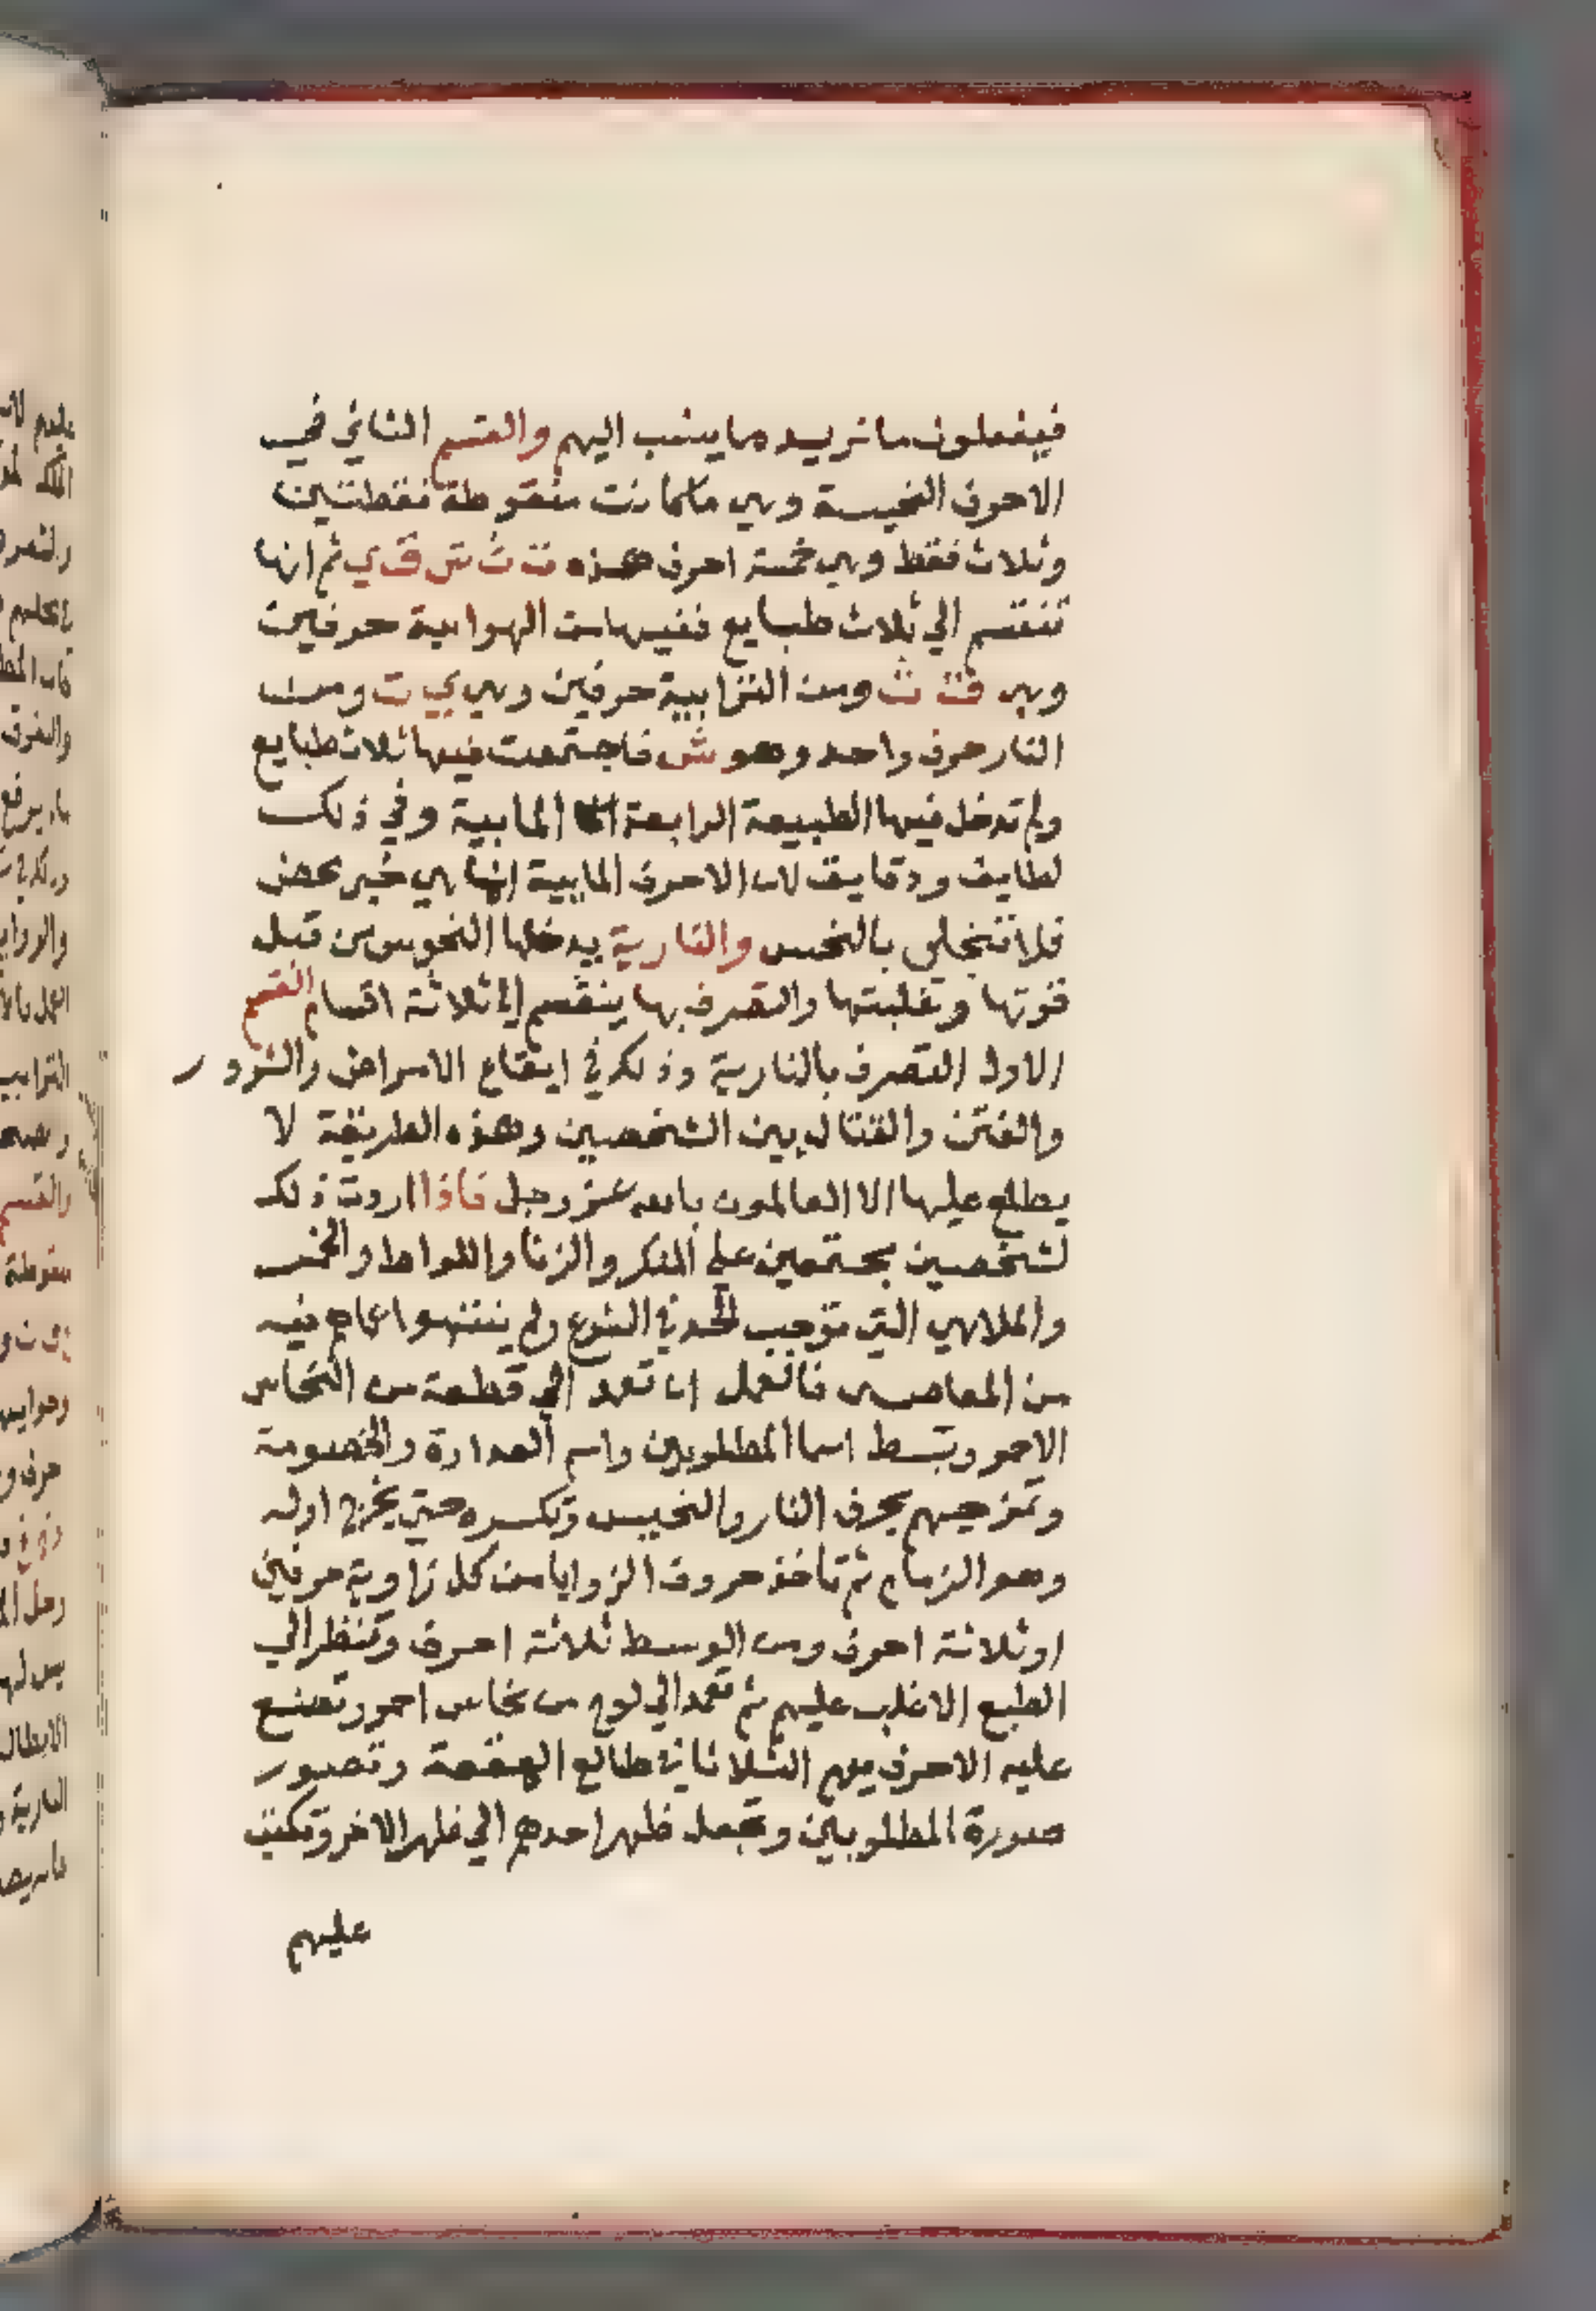 فيفعلون ما تريد ما ينسب اليهم والقسم الثاني في
الاحرف النحيسة وهي ما كانت منقوطة نقطتين
وثلاث فقط وهي خمسة احرف هذه ت ث ش ق ي ثم انها
تنقسم الي ثلاث طبايع ففيها من الهوايية حرفين
وهي ق ث ومن الترابية حرفين وهي ي ت ومن
النار حرف واحد وهو ش فاجتمعت فيها ثلاث طبايع
ولم تدخل فيها الطبيعة الرابعة المايية وفي ذلك
لطايف ودقايق لان الاحرف المايية انها هي خير محض
فلا تتجلي بالنحس والنارية يدخلها النحوس من قبل
قوتها وتغلبتها والتصرف بها ينقسم الي ثلاثة اقسام القسم
الاول التصرف بالنارية وذلك في ايقاع الامراض والشرور
والفتن والقتال بين الشخصين وهذه الطريقة لا
يطلع عليها الا العالمون بالله عز وجل فاذا اردت ذلك
لشخصين مجتمعين علي المنكر والزنا واللواط والخمر
والملاهي التي توجب الحد في الشرع ولم ينتهوا عما هم فيه
من المعاصي فالعمل ان تعمد الي قطعة من النحاس
الاحمر وتبسط اسما المطلوبين واسم العداوة والخصومة
وتمزجهم بحرف النار والنحيس وتكسره حتي يخرج اوله
وهو الزمام ثم تاخذ حروف الزوايا من كل زاوية حرفين
او ثلاثة احرف ومن الوسط ثلاثة احرف وتنظر الي
الطبع الاغلب عليهم ثم تعمد الي لوح من نحاس احمر وتصنع
عليه الاحرف يوم الثلاثا في طالع الهقعة وتصور
صورة المطلوبين وتجعل ظهر احدهم الي ظهر الاخر وتكتب
عليهم